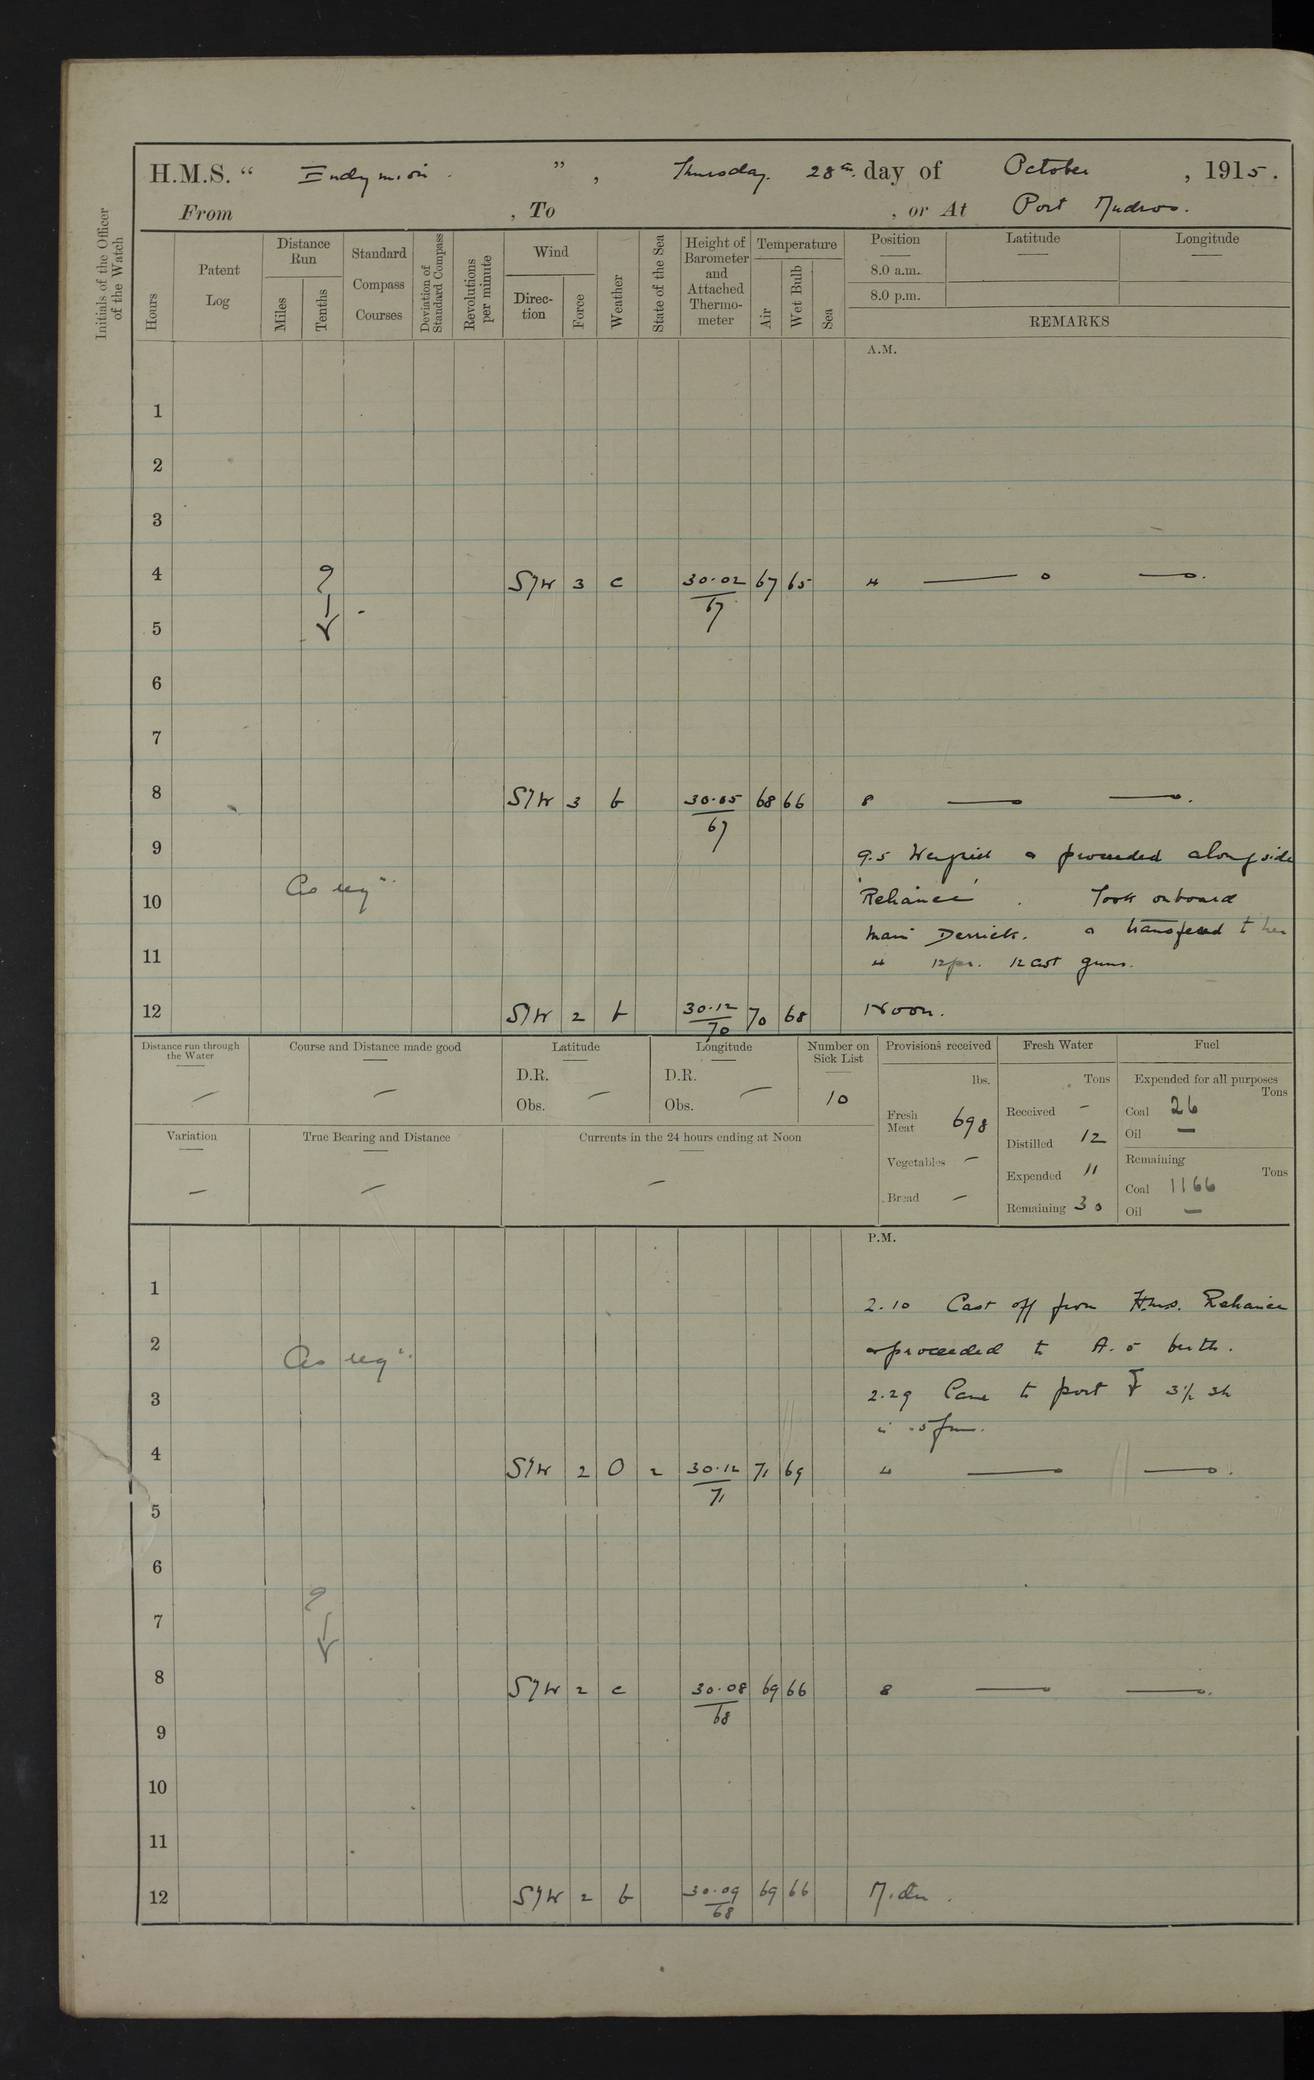 H.M.S. “ Endymion ” , Thursday. 28th. day of October , 1915.
From , To , or At Port Mudros.
Initials of the Officer of the Watch
Hours
Patent Log
Distance Run
Miles
Tenths
Standard Compass Courses
Deviation of Standard Compass
Revolutions per minute
Wind
Direc-tion
Force
Weather
State of the Sea
Height of Barometer and Attached Thermo-meter
Temperature
Air
Wet Bulb
Sea
Position
8.0 a.m.
8.0 p.m.
Latitude
Longitude
REMARKS
A.M.
1
2
3
4 S/W 3 c 30.02/67 67 65 4
5
6
7
8 S/W 3 b 30.05/67 68 66 8
9 9.5 Weighed & proceeded alongside
10 As reqd 'Reliance' . Took onboard
Main Derrick. & transfered to her
11 4 12pr. 12 cwt guns.
12 S/W 2 b 30.12/70 70 68 Noon.
Distance run through the Water —
Course and Distance made good —
Latitude
D.R.
Obs. —
Longitude
D.R.
Obs. —
Number on Sick List
10
Provisions received
lbs.
Fresh Meat 698
Vegetables —
Bread —
Fresh Water
Tons
Received -
Distilled 12
Expended 11
Remaining 30
Fuel
Expended for all purposes
Tons
Coal 26
Oil —
Remaining
Tons
Coal 1166
Oil —
Variation —
True Bearing and Distance —
Currents in the 24 hours ending at Noon —
P.M.
1 2.10 Cast off from H.M.S. Reliance
2 As reqd & proceeded to A.5 berth.
3 2.29 Came to port 3½ sh
in 5 fms.
4 S/W 2 O 2 30.12/71 71 69 4
5
6
7
8 S/W 2 c 30.08/68 69 66 8
9
10
11
12 S/W 2 b 30.09/68 69 66 Midn.